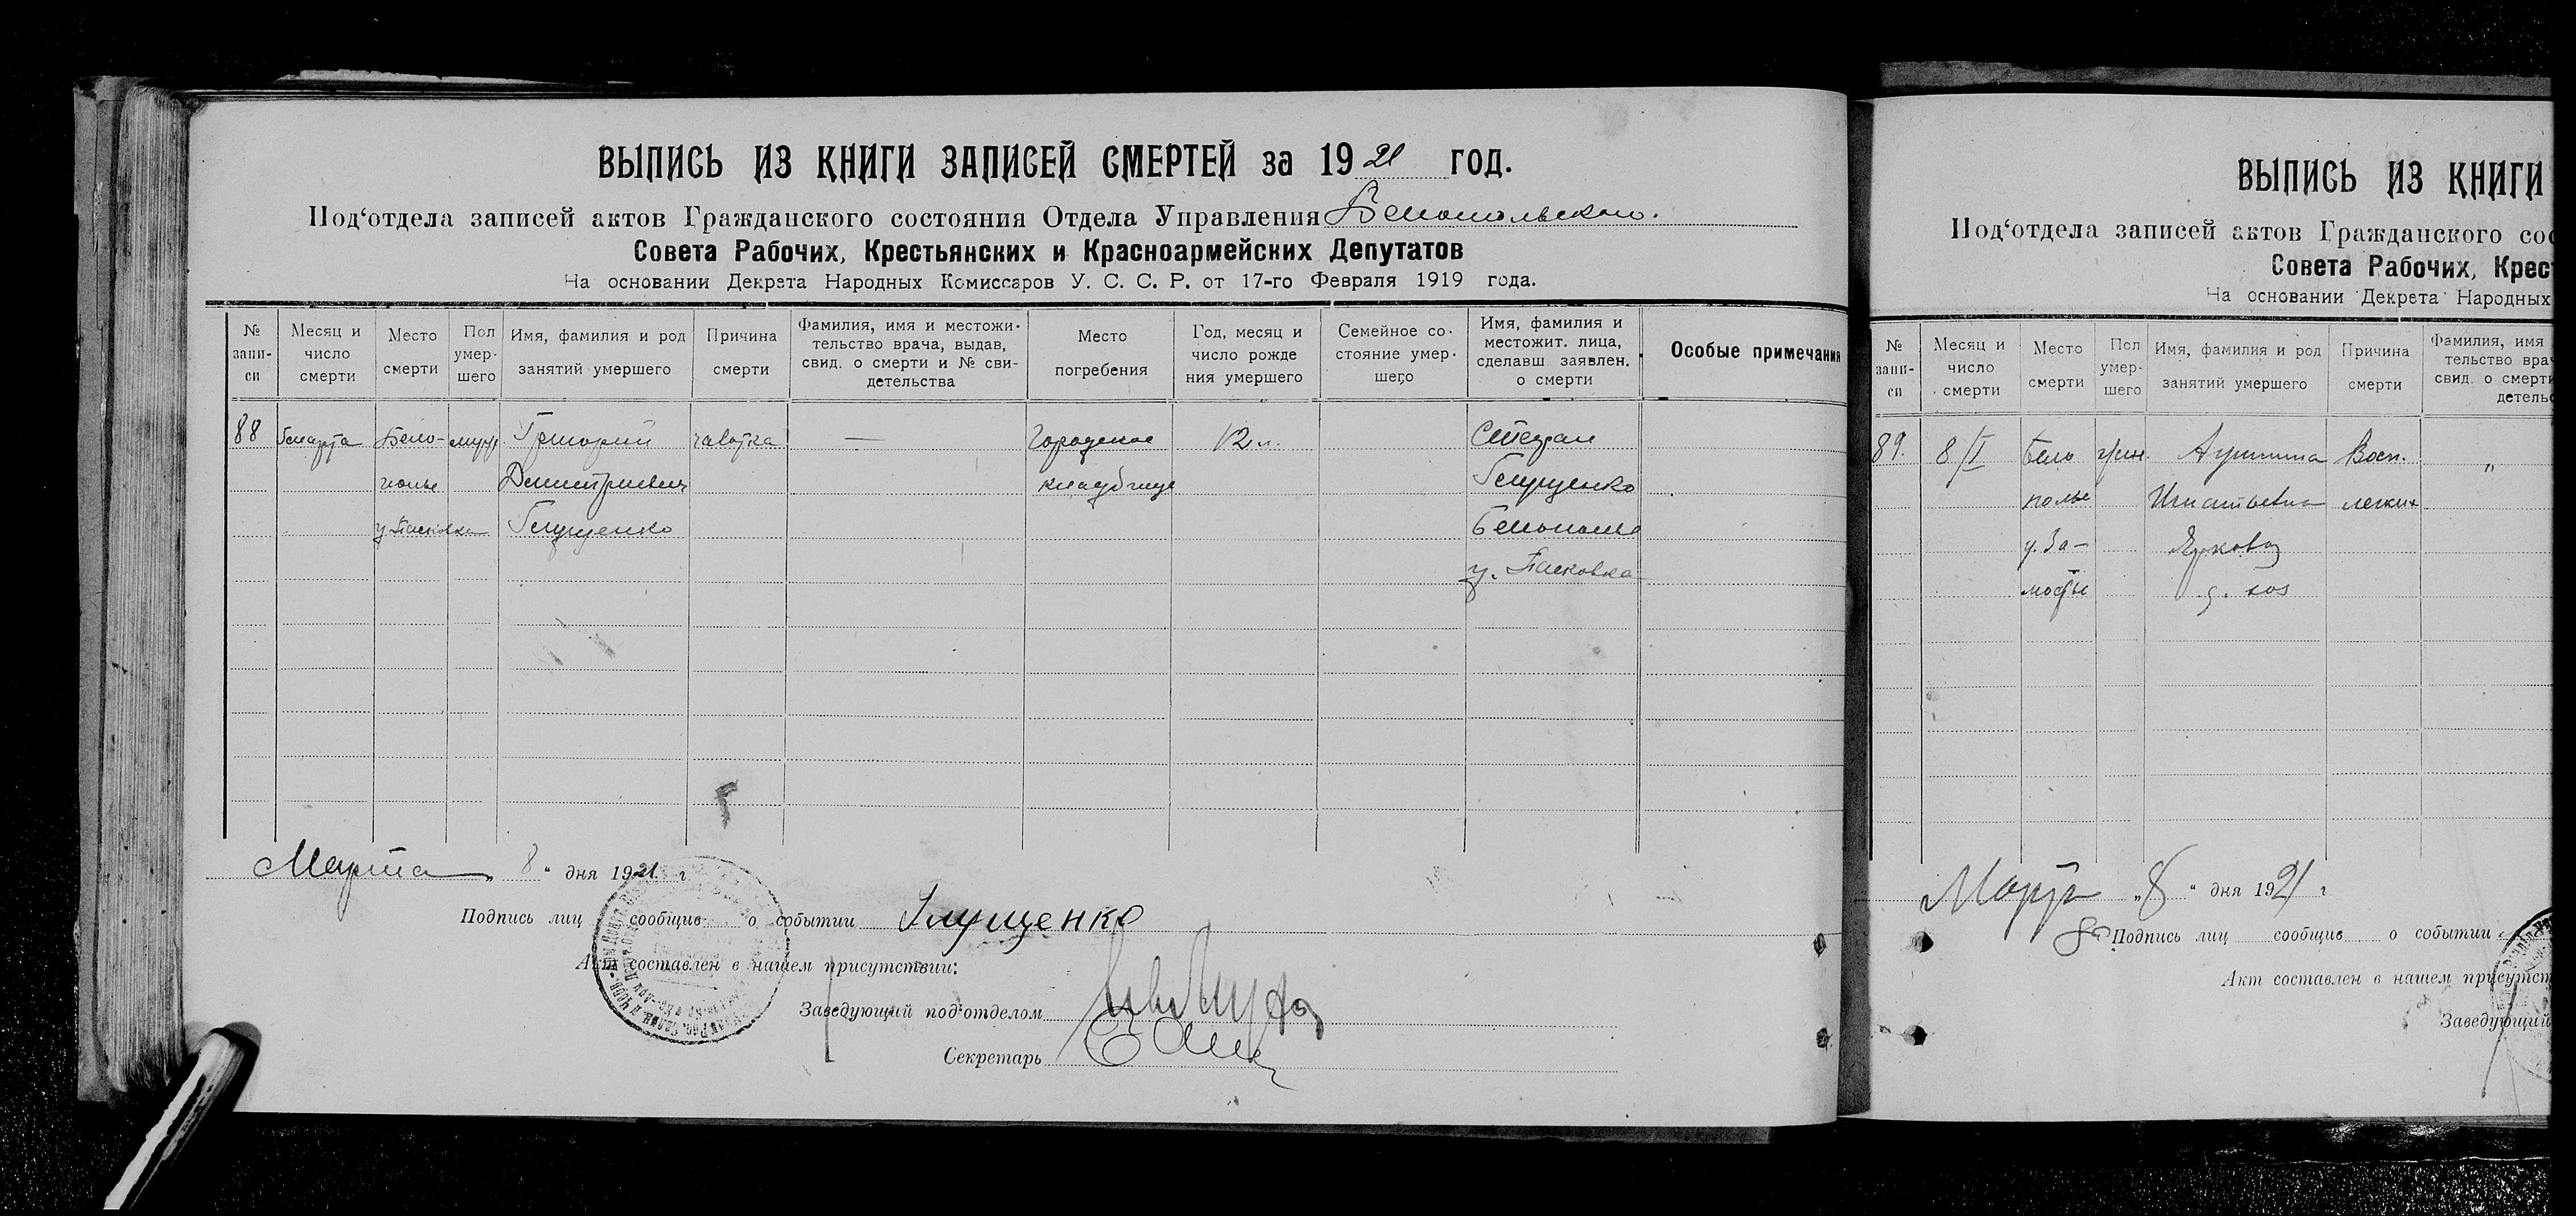 ВЫПИСЬ ИЗ КНИГИ ЗАПИСЕЙ СМЕРТЕЙ за 1921 год.
Под‘отдела записей актов Гражданского состояния Отдела Управления Белопольского.
Совета Рабочих, Крестьянских и Красноармейских Депутатов
На основании Декрета Народных Комиссаров У. С. С. Р. от 17-го Февраля 1919 года.
№ запи-си
Месяц и число смерти
Место смерти
Пол умер-шего
Имя, фамилия и род занятий умершего
Причина смерти
Фамилия, имя и местожи-тельство врача, выдав, свид. о смерти и № сви-детельства
Место погребения
Год, месяц и число рожде ния умершего
Семейное со-стояние умер-шего
Имя, фамилия и местожит. лица, сделавш заявлен. о смерти
Особые примечания
88 марта Бело- муж. Григорий чахотка — городское 12 л. Стефан
полье Дмитриевич кладбище Глущенко
у. Пасковка Глущенко Белополье
у. Пасковка
Марта 8 " дня 1921 г
Подпись лиц сообщив о событии Глущенко
Акт составлен в нашем присутствии:
Заведующий под‘отделом
Секретарь
ВЫПИСЬ ИЗ КНИГИ
Под‘отдела записей актов Гражданского сос
Совета Рабочих, Крест
На основании Декрета Народных
№ запи-си
Месяц и число смерти
Место смерти
Пол умер-шего
Имя, фамилия и род занятий умершего
Причина смерти
Фамилия, имя
тельство вра
свид. о смерти
детельс
89. 8/I Бело жен. Восп. "
полье Игнатьевна легких
у. За-
мостье
Март „8 " дня 1921 г
Подпись лиц сообщив о событии
Акт составлен в нашем присутст
Заведующий